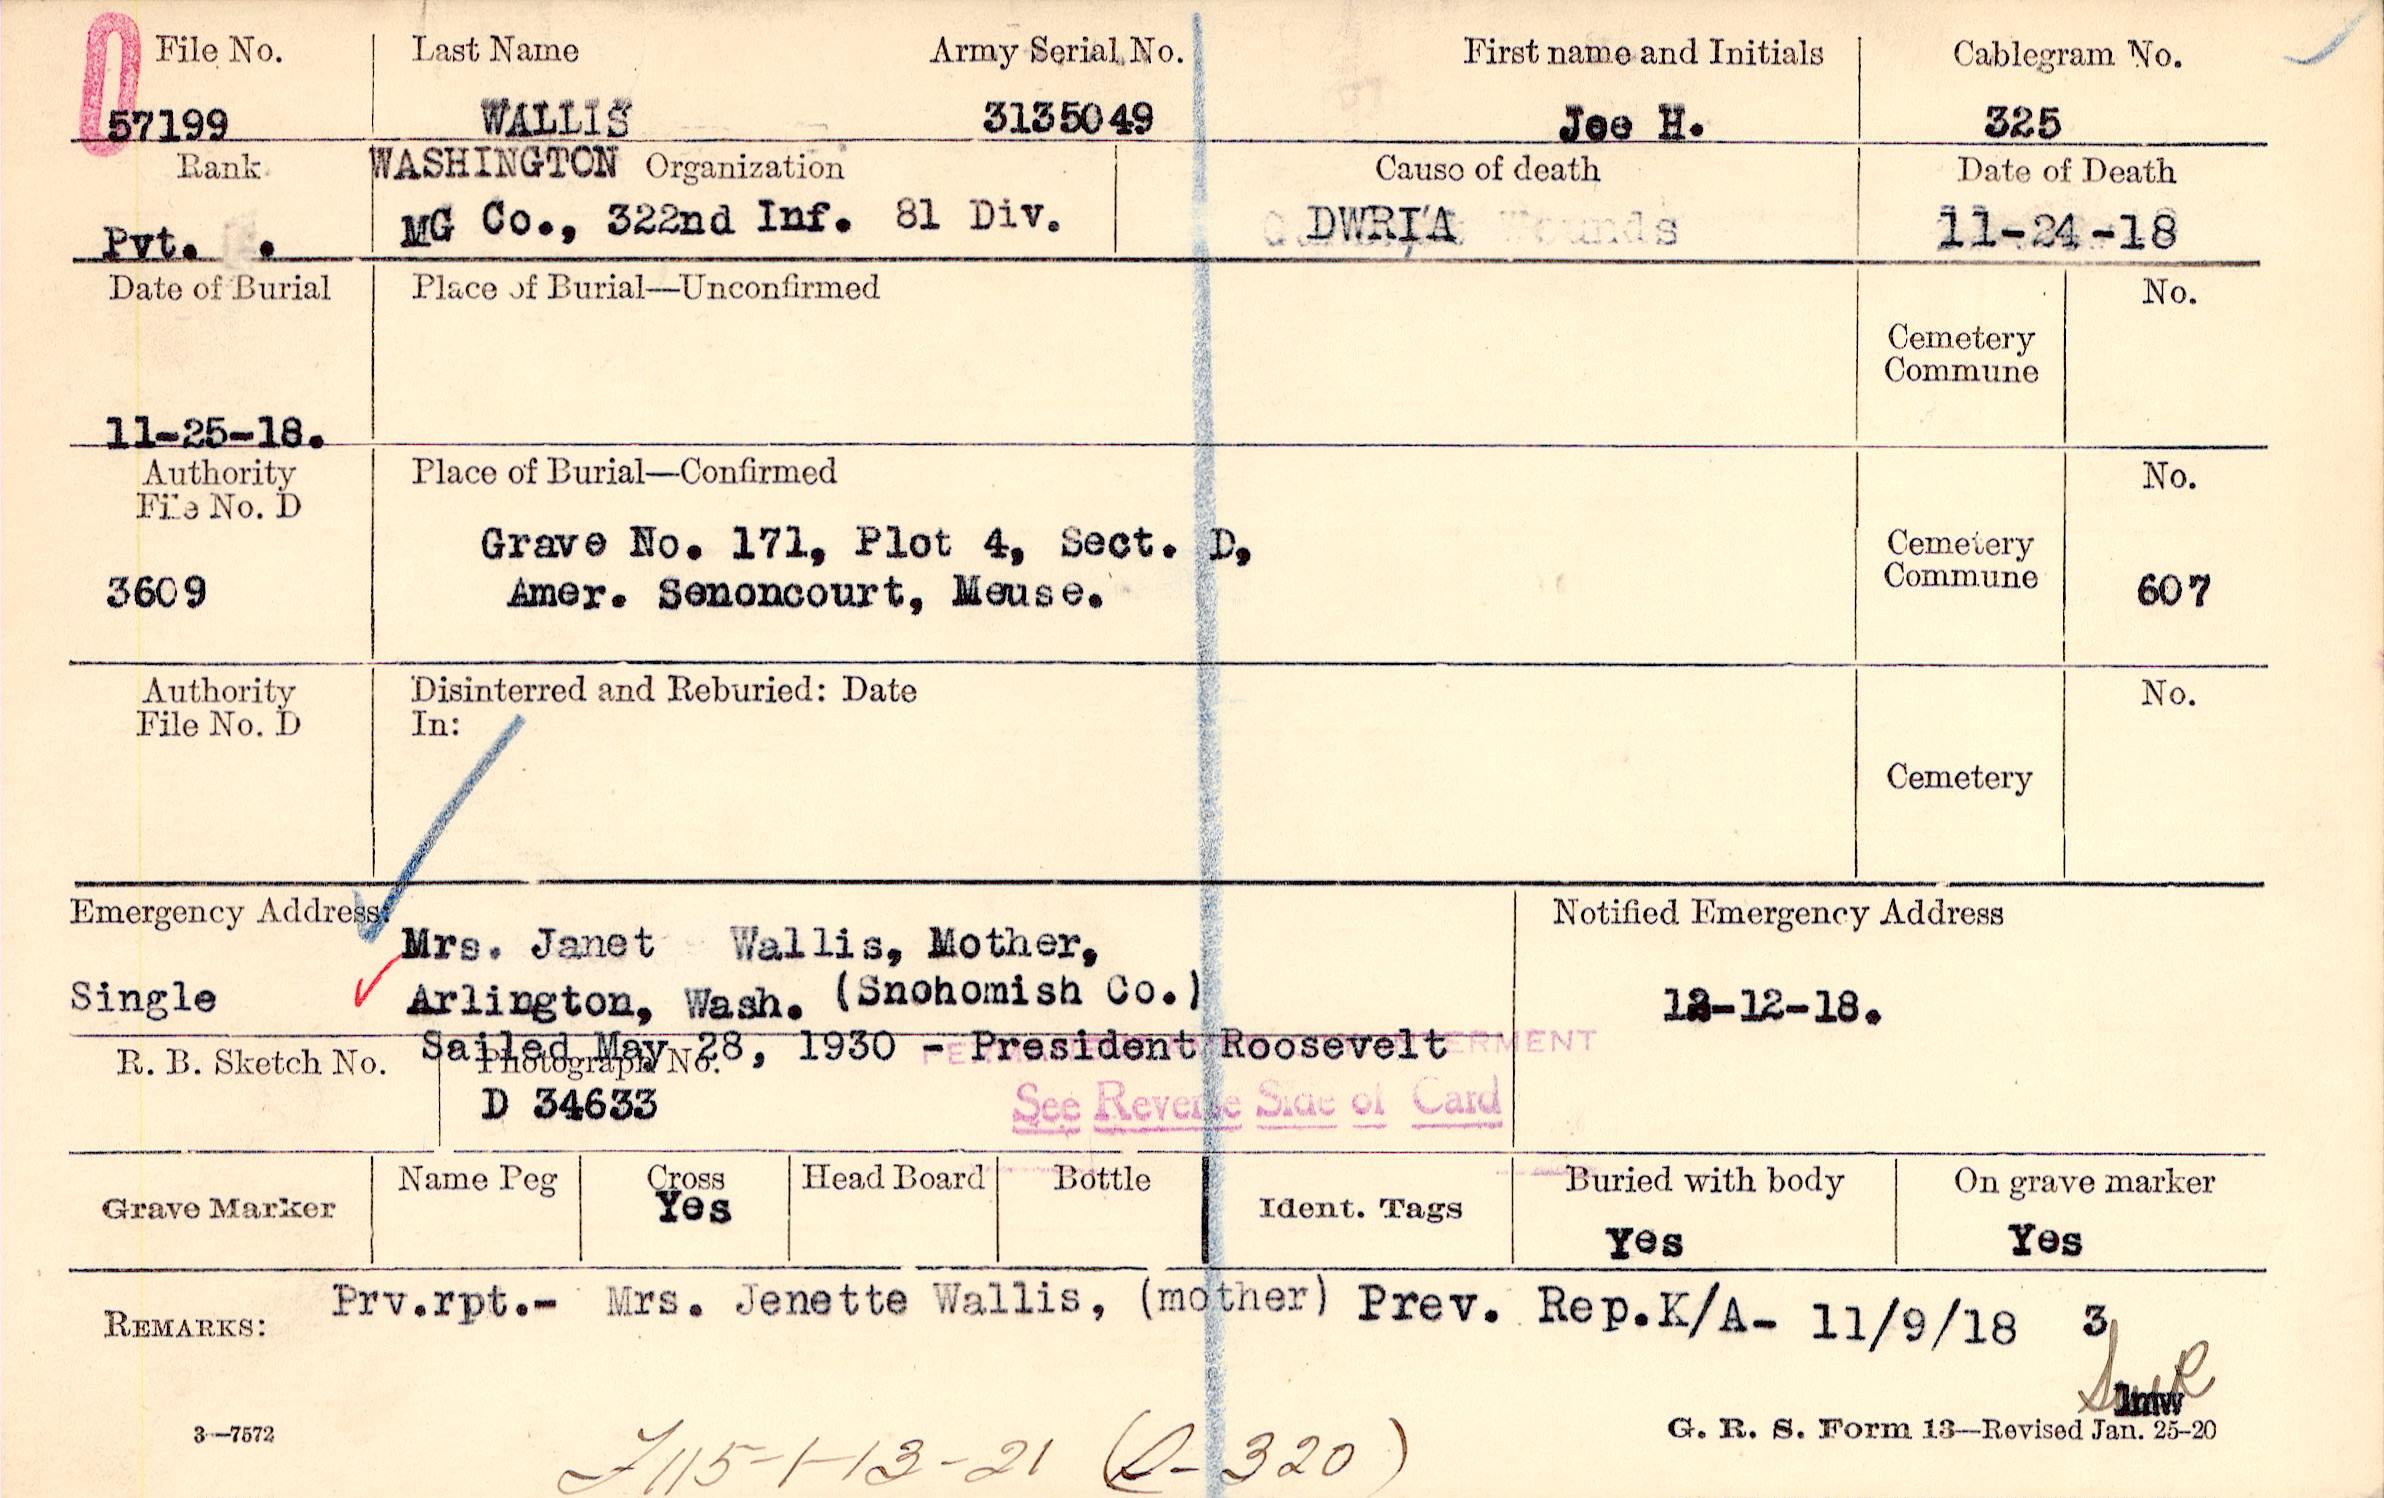 File No. Last Name Army Serial No. First name and Initials Cablegram No.
57199 WALLIS 3135049 Joe H. 325
Rank WASHINGTON Organization Cause of death Date of Death
Pvt. . MG Co., 322nd Inf. 81 Div. DWRIA Wounds 11-24-18
Date of Burial Place of Burial—Unconfirmed No.
Cemetery
Commune
11-25-18.
Authority Place of Burial—Confirmed No.
File No. D
Grave No. 171, Plot 4, Sect. D, Cemetery
3609 Amer. Senoncourt, Meuse. Commune 607
Authority Disinterred and Reburied: Date No.
File No. D In:
Cemetery
Emergency Address: Notified Emergency Address
Mrs. Janet Wallis, Mother,
Single Arlington, Wash. (Snohomish Co.) 12-12-18.
Sailed May 28, 1930 - President Roosevelt
R. B. Sketch No. Photograph No.
D 34633 See Reverse Side of Card
Name Peg Cross Head Board Bottle Buried with body On grave marker
Grave Marker Yes Ident. Tags Yes Yes
REMARKS: Prv.rpt.- Mrs. Jenette Wallis, (mother) Prev. Rep.K/A- 11/9/18 3
lmw
3—7572 G. R. S. Form 13—Revised Jan. 25-20
115-1-13-21 320)